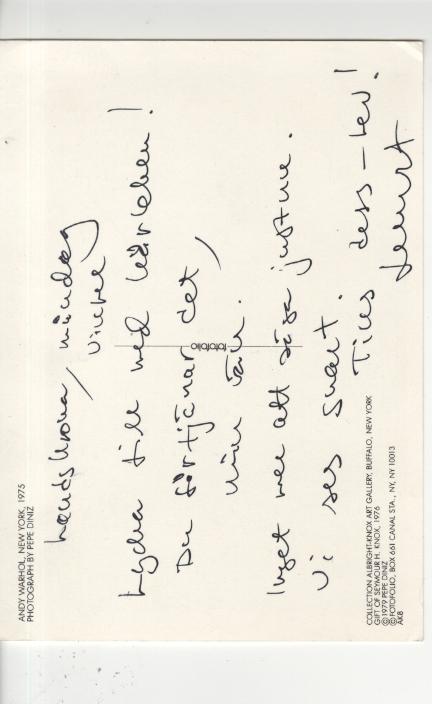 ANDY WARHOL, NEW YORK, 1975
PHOTOGRAPH BY PEPE DINIZ
Landskrona, måndag
vinter
Lycka till med kärleken!
Du förtjänar det,
min vän.
Inget mer att säga just nu.
Vi ses snart.
Tills dess – lev!
Lennart
fotofolio
COLLECTION ALBRIGHT-KNOX ART GALLERY, BUFFALO, NEW YORK
GIFT OF SEYMOUR H. KNOX, 1976
©1979 PEPE DINIZ
©FOTOFOLIO, BOX 661 CANAL STA., NY, NY 10013
AK8